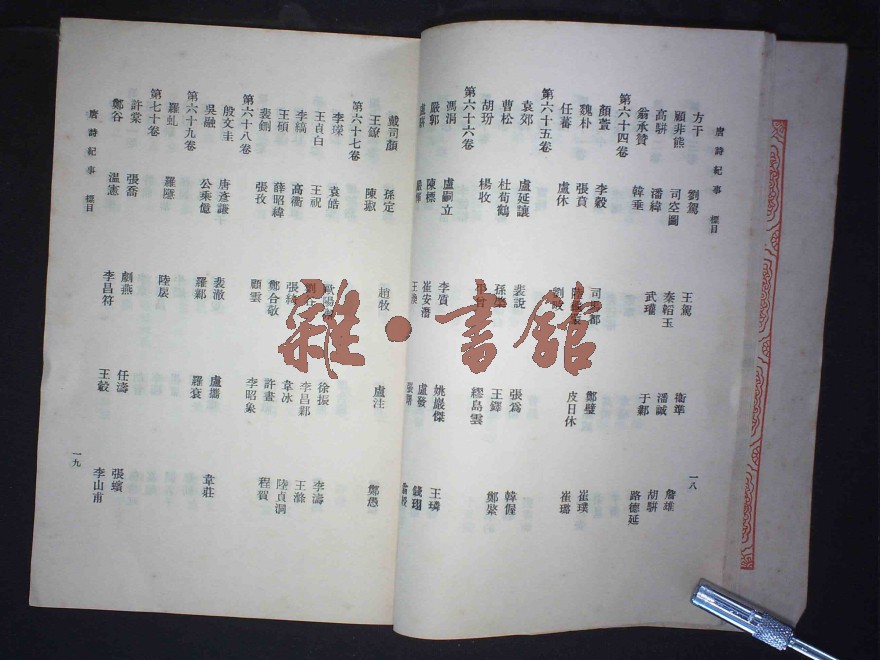 唐詩紀事 標目
一八
方干 劉駕 王駕 衛準 詹雄
顧非熊 司空圖 秦韜玉 潘誠 胡騈
高騈 潘緯 武瓘 于鄴 路德延
翁承贊 韓垂
第六十四卷
顏萱 李縠 司馬都 鄭璧 崔璞
魏朴 張賁 皮日休 崔璐
任蕃 盧休
第六十五卷
袁郊 盧延讓 裴說 張爲 韓偓
曹松 杜荀鶴 王鐸 鄭綮
胡玢 楊收 繆島雲
第六十六卷
馮涓 盧嗣立 李質 姚巖傑 王璘
嚴郭 陳標 崔安潛 盧發 錢珝
戴司顏 孫定 趙牧 盧注 鄭愚
王鐐 陳琡
第六十七卷
李瑈 袁皓 歐陽 徐振 李濤
王貞白 王祝 李昌鄴 王滌
李縞 高衢 張 韋冰 陸貞洞
王碩 薛昭緯 鄭合敬 許晝 程賀
裴鉶 張孜 顧雲 李昭象
第六十八卷
殷文圭 唐彥謙 裴澈 盧攜 韋莊
吳融 公乘億 羅鄴 羅袞
第六十九卷
羅虬 羅隱 陸扆
第七十卷
許棠 張喬 劇燕 任濤 張蠙
鄭谷 溫憲 李昌符 王轂 李山甫
唐詩紀事 標目
一九
雜·書館